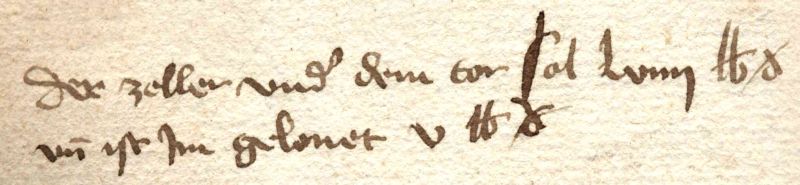 der zoller vnd' dem tor sol lviiij lb ₰
vn̄ ist Im gelonet v lb ₰